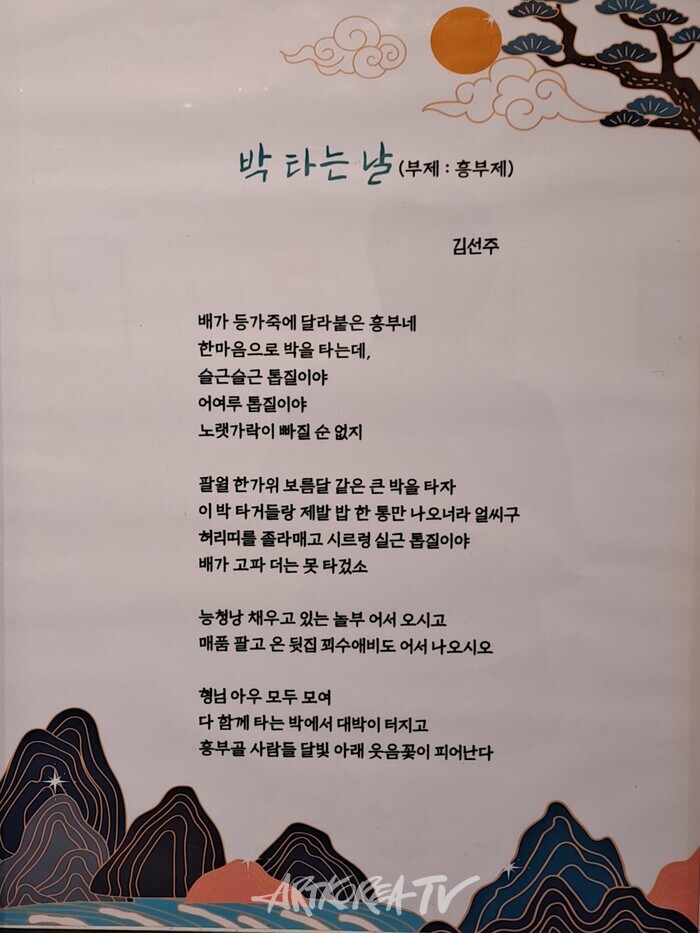 박 타는 날 (부제 : 흥부제)
김선주
배가 등가죽에 달라붙은 흥부네
한마음으로 박을 타는데,
슬근슬근 톱질이야
어여루 톱질이야
노랫가락이 빠질 순 없지
팔월 한가위 보름달 같은 큰 박을 타자
이 박 타거들랑 제발 밥 한 통만 나오너라 얼씨구
허리띠를 졸라매고 시르렁 실근 톱질이야
배가 고파 더는 못 타겄소
능청낭 채우고 있는 놀부 어서 오시고
매품 팔고 온 뒷집 꾀수애비도 어서 나오시오
형님 아우 모두 모여
다 함께 타는 박에서 대박이 터지고
흥부골 사람들 달빛 아래 웃음꽃이 피어난다
ARTKOREATV